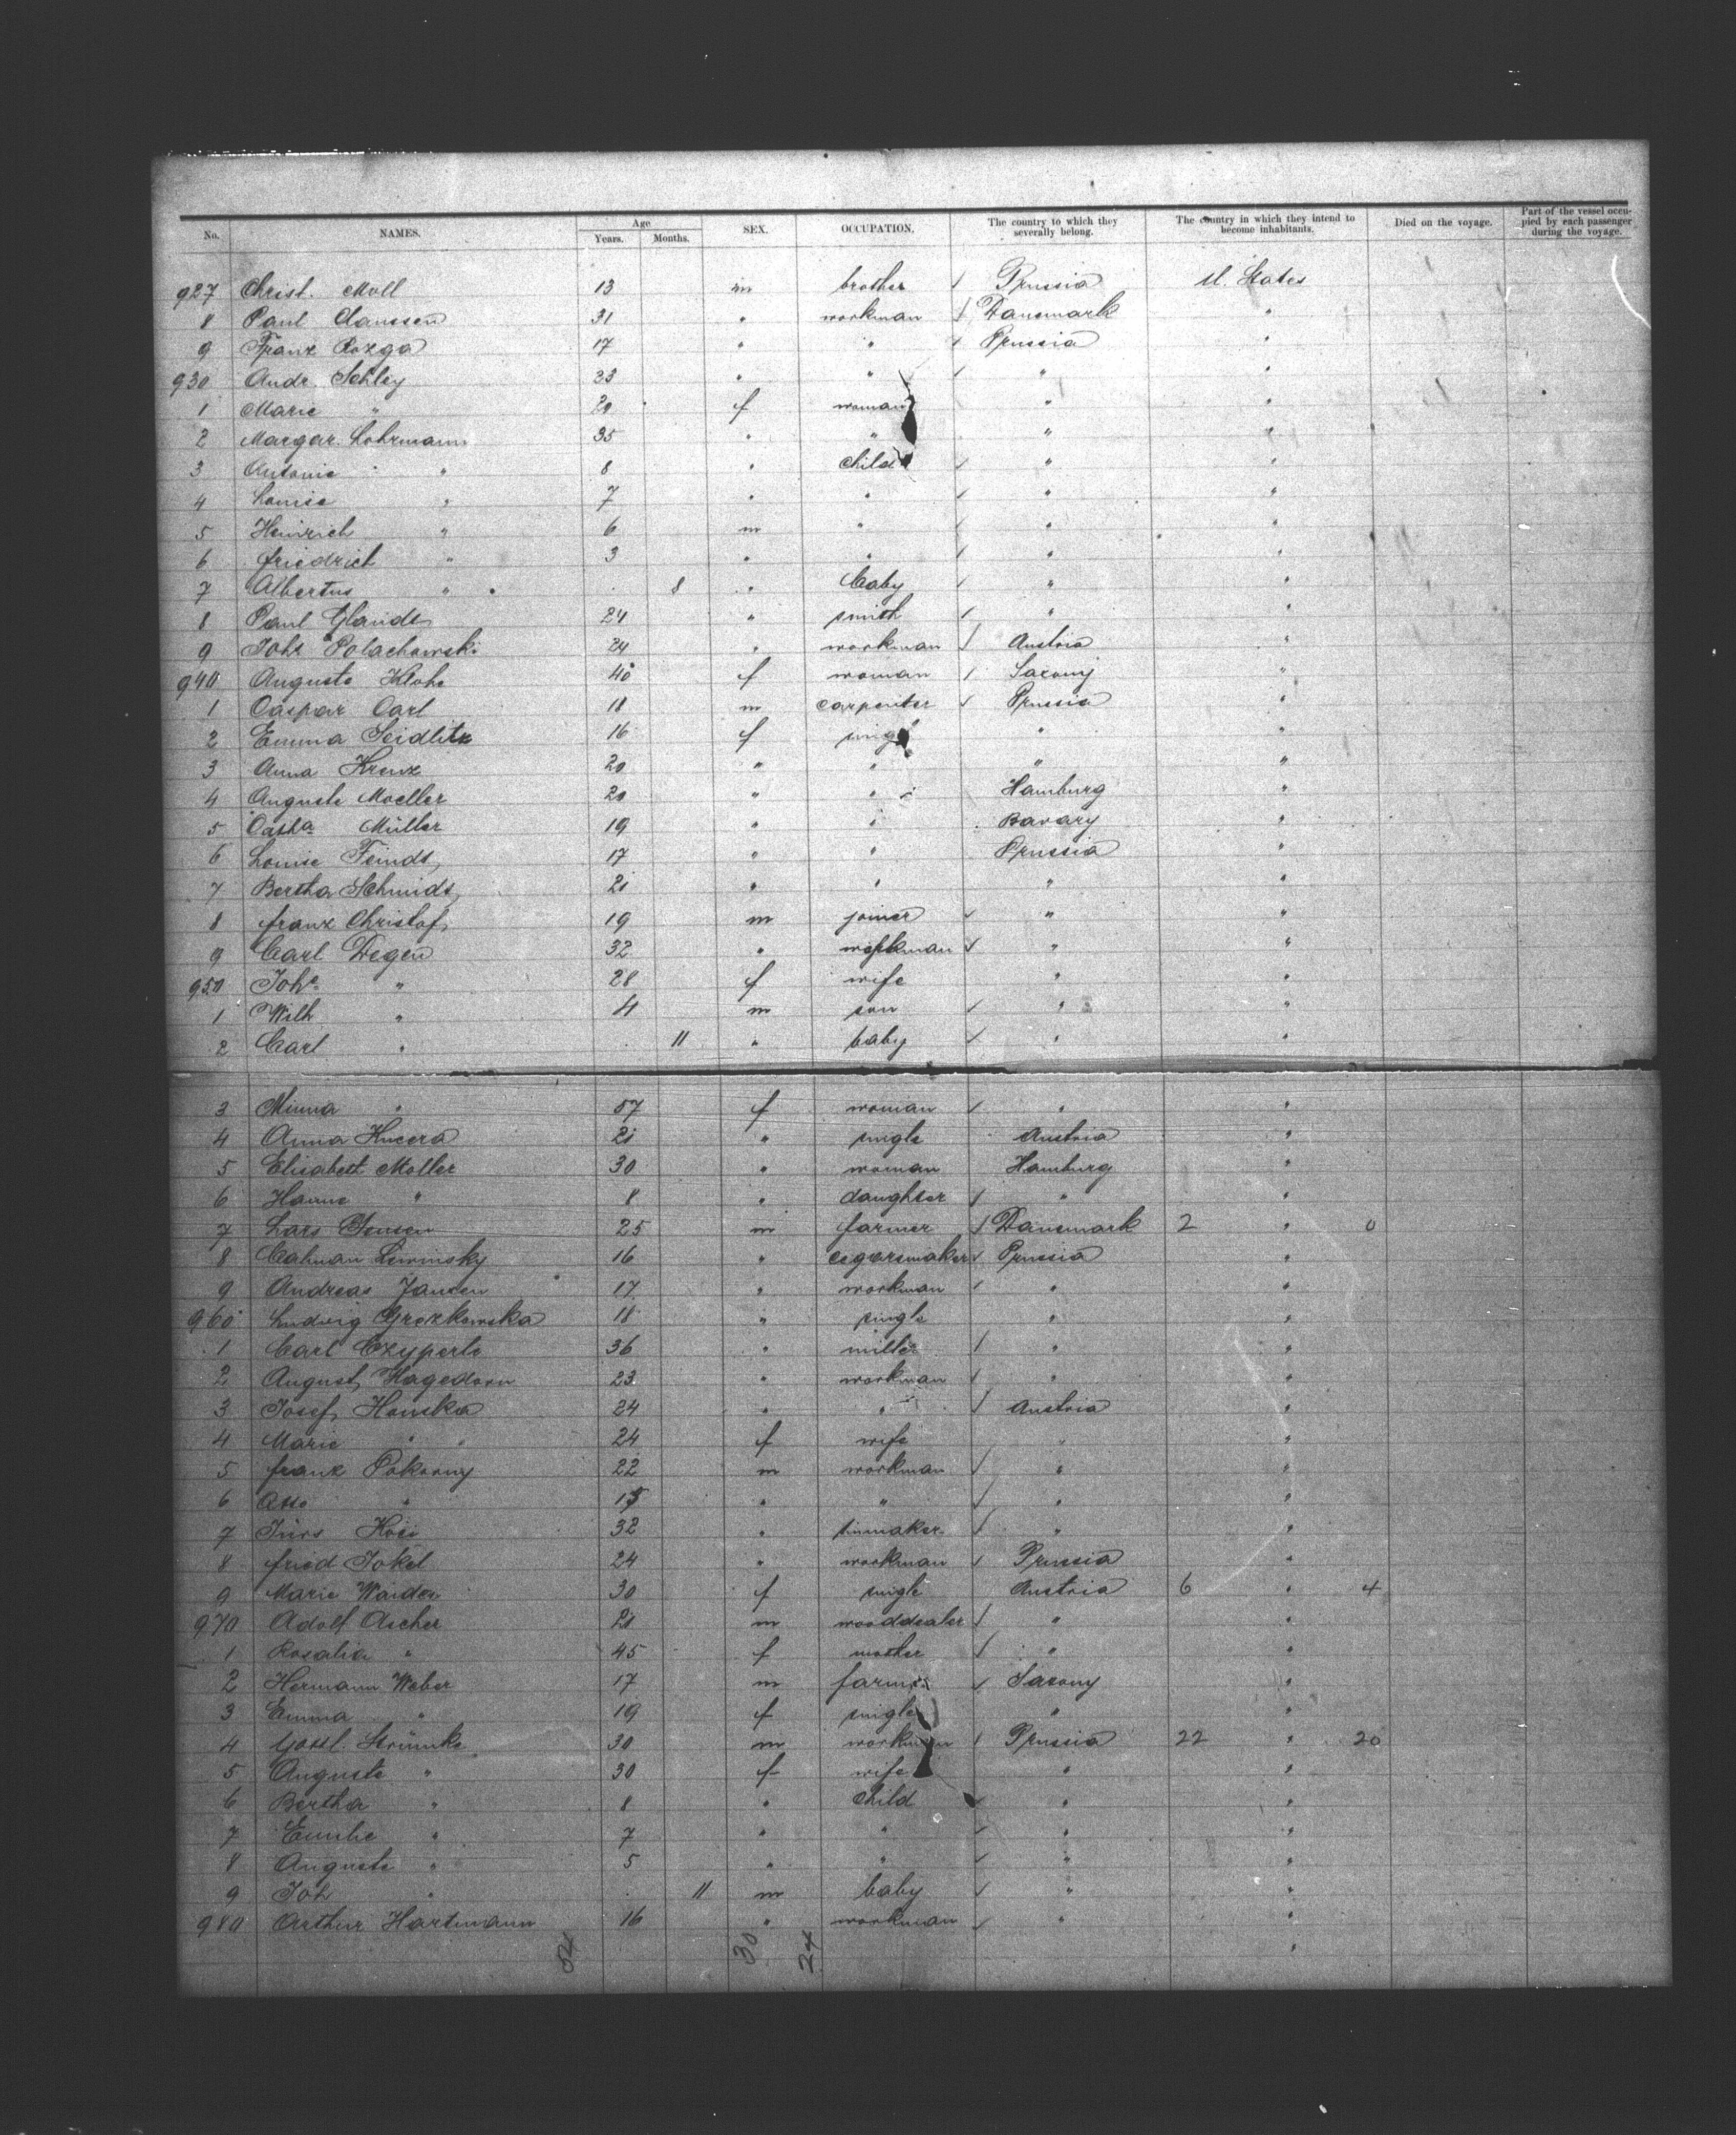 No. NAMES. Age Years. Months. SEX. OCCUPATION. The country to which they severally belong. The country in which they intend to become inhabitants. Died on the voyage. Part of the vessel occupied by each passenger during the voyage.
927 Christ. Moll 13 m brother Prussia U. States
8 Paul Claussen 31 " workman Danemark "
9 Franz Rozga 17 " " Prussia "
930 Andr. Schley 23 " " " "
1 Marie " 20 f woman " "
2 Margar. Lohrmann 35 " " " "
3 Antonie " 8 " child " "
4 Louise " 7 " " " "
5 Heinrich " 6 m " " "
6 friedrich " 3 " " " "
7 Albertus " 8 " baby " "
8 Paul Glandt 24 " smith " "
9 Johs Polachowski 24 " workman Austria "
940 Auguste Klohe 40 f woman Saxony "
1 Caspar Carl 18 m carpenter Prussia "
2 Emma Seidlitz 16 f " "
3 Anna Krenz 20 " " " "
4 Auguste Moeller 20 " " Hamburg "
5 Catha Müller 19 " " Bavary "
6 Louise Feindt 17 " " Prussia "
7 Bertha Schmidt 21 " " " "
8 franz Christof 19 m joiner " "
9 Carl Degen 32 " workman " "
950 Johe " 28 f wife " "
1 Wilh " 4 m son " "
2 Carl " 11 " baby " "
3 Minna " 57 f woman " "
4 Anna Kucera 21 " single Austria "
5 Elisabeth Moller 30 " woman Hamburg "
6 Hanne " 8 " daughter " "
7 Lars Jensen 25 m farmer Danemark 2 " 0
8 Calman Liwinsky 16 " cegarsmaker Prussia "
9 Andreas Jansen 17 " workman " "
960 Ludwig Grozkowska 18 " single " "
1 Carl Czyperle 36 " miller " "
2 August Hagedorn 23 " workman " "
3 Josef Houska 24 " " Austria "
4 Marie " 24 f wife " "
5 franz Pokorny 22 m workman " "
6 Otto " 15 " " " "
7 32 " " "
8 fried Jokel 24 " workman Prussia "
9 Marie Waider 30 f single Austria 6 " 4
970 Adolf Ascher 21 m wooddealer " "
1 Rosalia " 45 f mother " "
2 Hermann Weber 17 m farmer Saxony "
3 Emma " 19 f single " "
4 Gottl Strümke 30 m workman Prussia 22 " 20
5 Auguste " 30 f wife " "
6 Bertha " 8 " child " "
7 Emilie " 7 " " " "
8 Auguste " 5 " " " "
9 Joh " 11 m baby " "
980 Arthur Hartmann 16 " workman " "
54 30 24 "